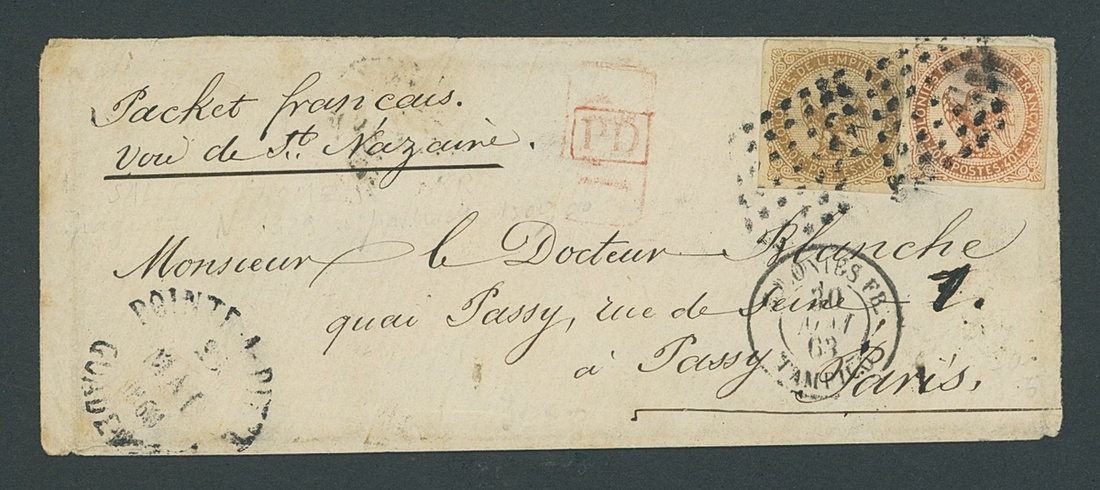 Packet français.
Voie de St. Nazaire.
PD
COLONIES DE L'EMPIRE
POSTES
COLONIES DE L'EMPIRE FRANÇAIS
POSTES. 40
Monsieur le Docteur Blanche
quai Passy, rue de Seine 1.
à Passy Paris.
COLONIES FR.
AOUT
63
POINTE-A-PITRE